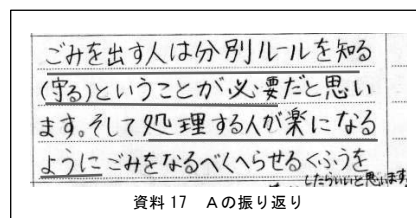 ごみを出す人は分別ルールを知る
(守る)ということが必要だと思い
ます。そして処理する人が楽になる
ようにごみをなるべくへらせるくふうを
したらいいと思います。
資料17 Aの振り返り